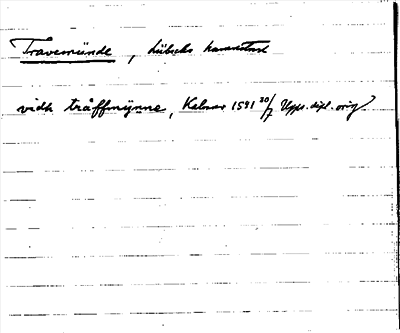 Travemünde, Lübecks hamnstad
vidh tråffmÿnne, Kalmar 1541 20/7 Upps. dipl. orig.